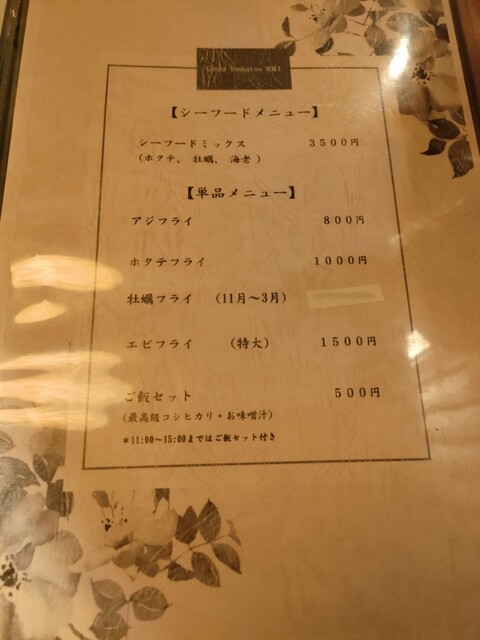 Ginza Tonkatsu AOKI
【シーフードメニュー】
シーフードミックス 3500円
(ホタテ、 牡蠣、 海老 )
【単品メニュー】
アジフライ 800円
ホタテフライ 1000円
牡蠣フライ (11月～3月)
エビフライ (特大) 1500円
ご飯セット 500円
(最高級コシヒカリ・お味噌汁)
*11:00～15:00まではご飯セット付き